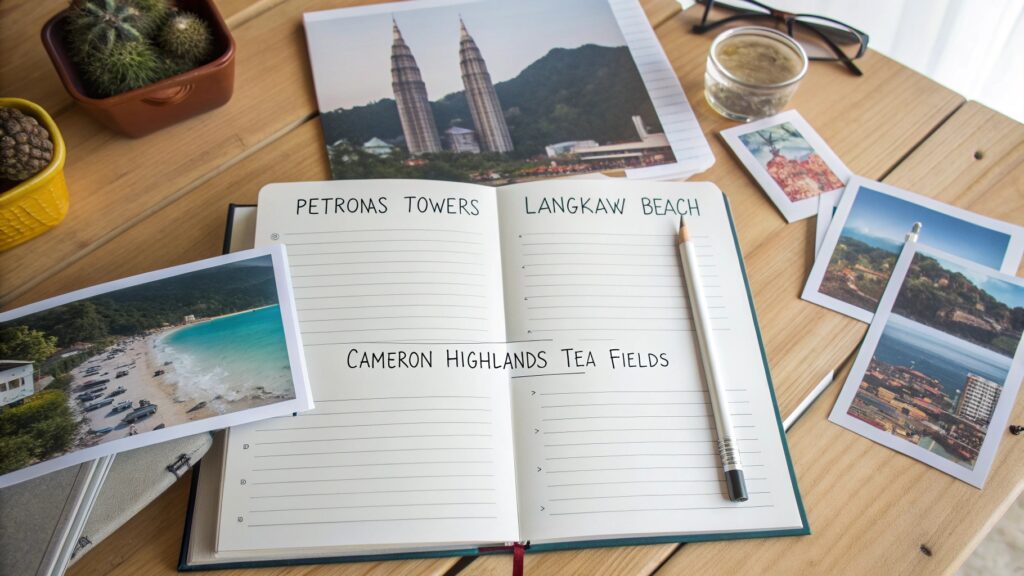 PETRONAS TOWERS
LANGKAW BEACH
CAMERON HIGHLANDS TEA FIELDS